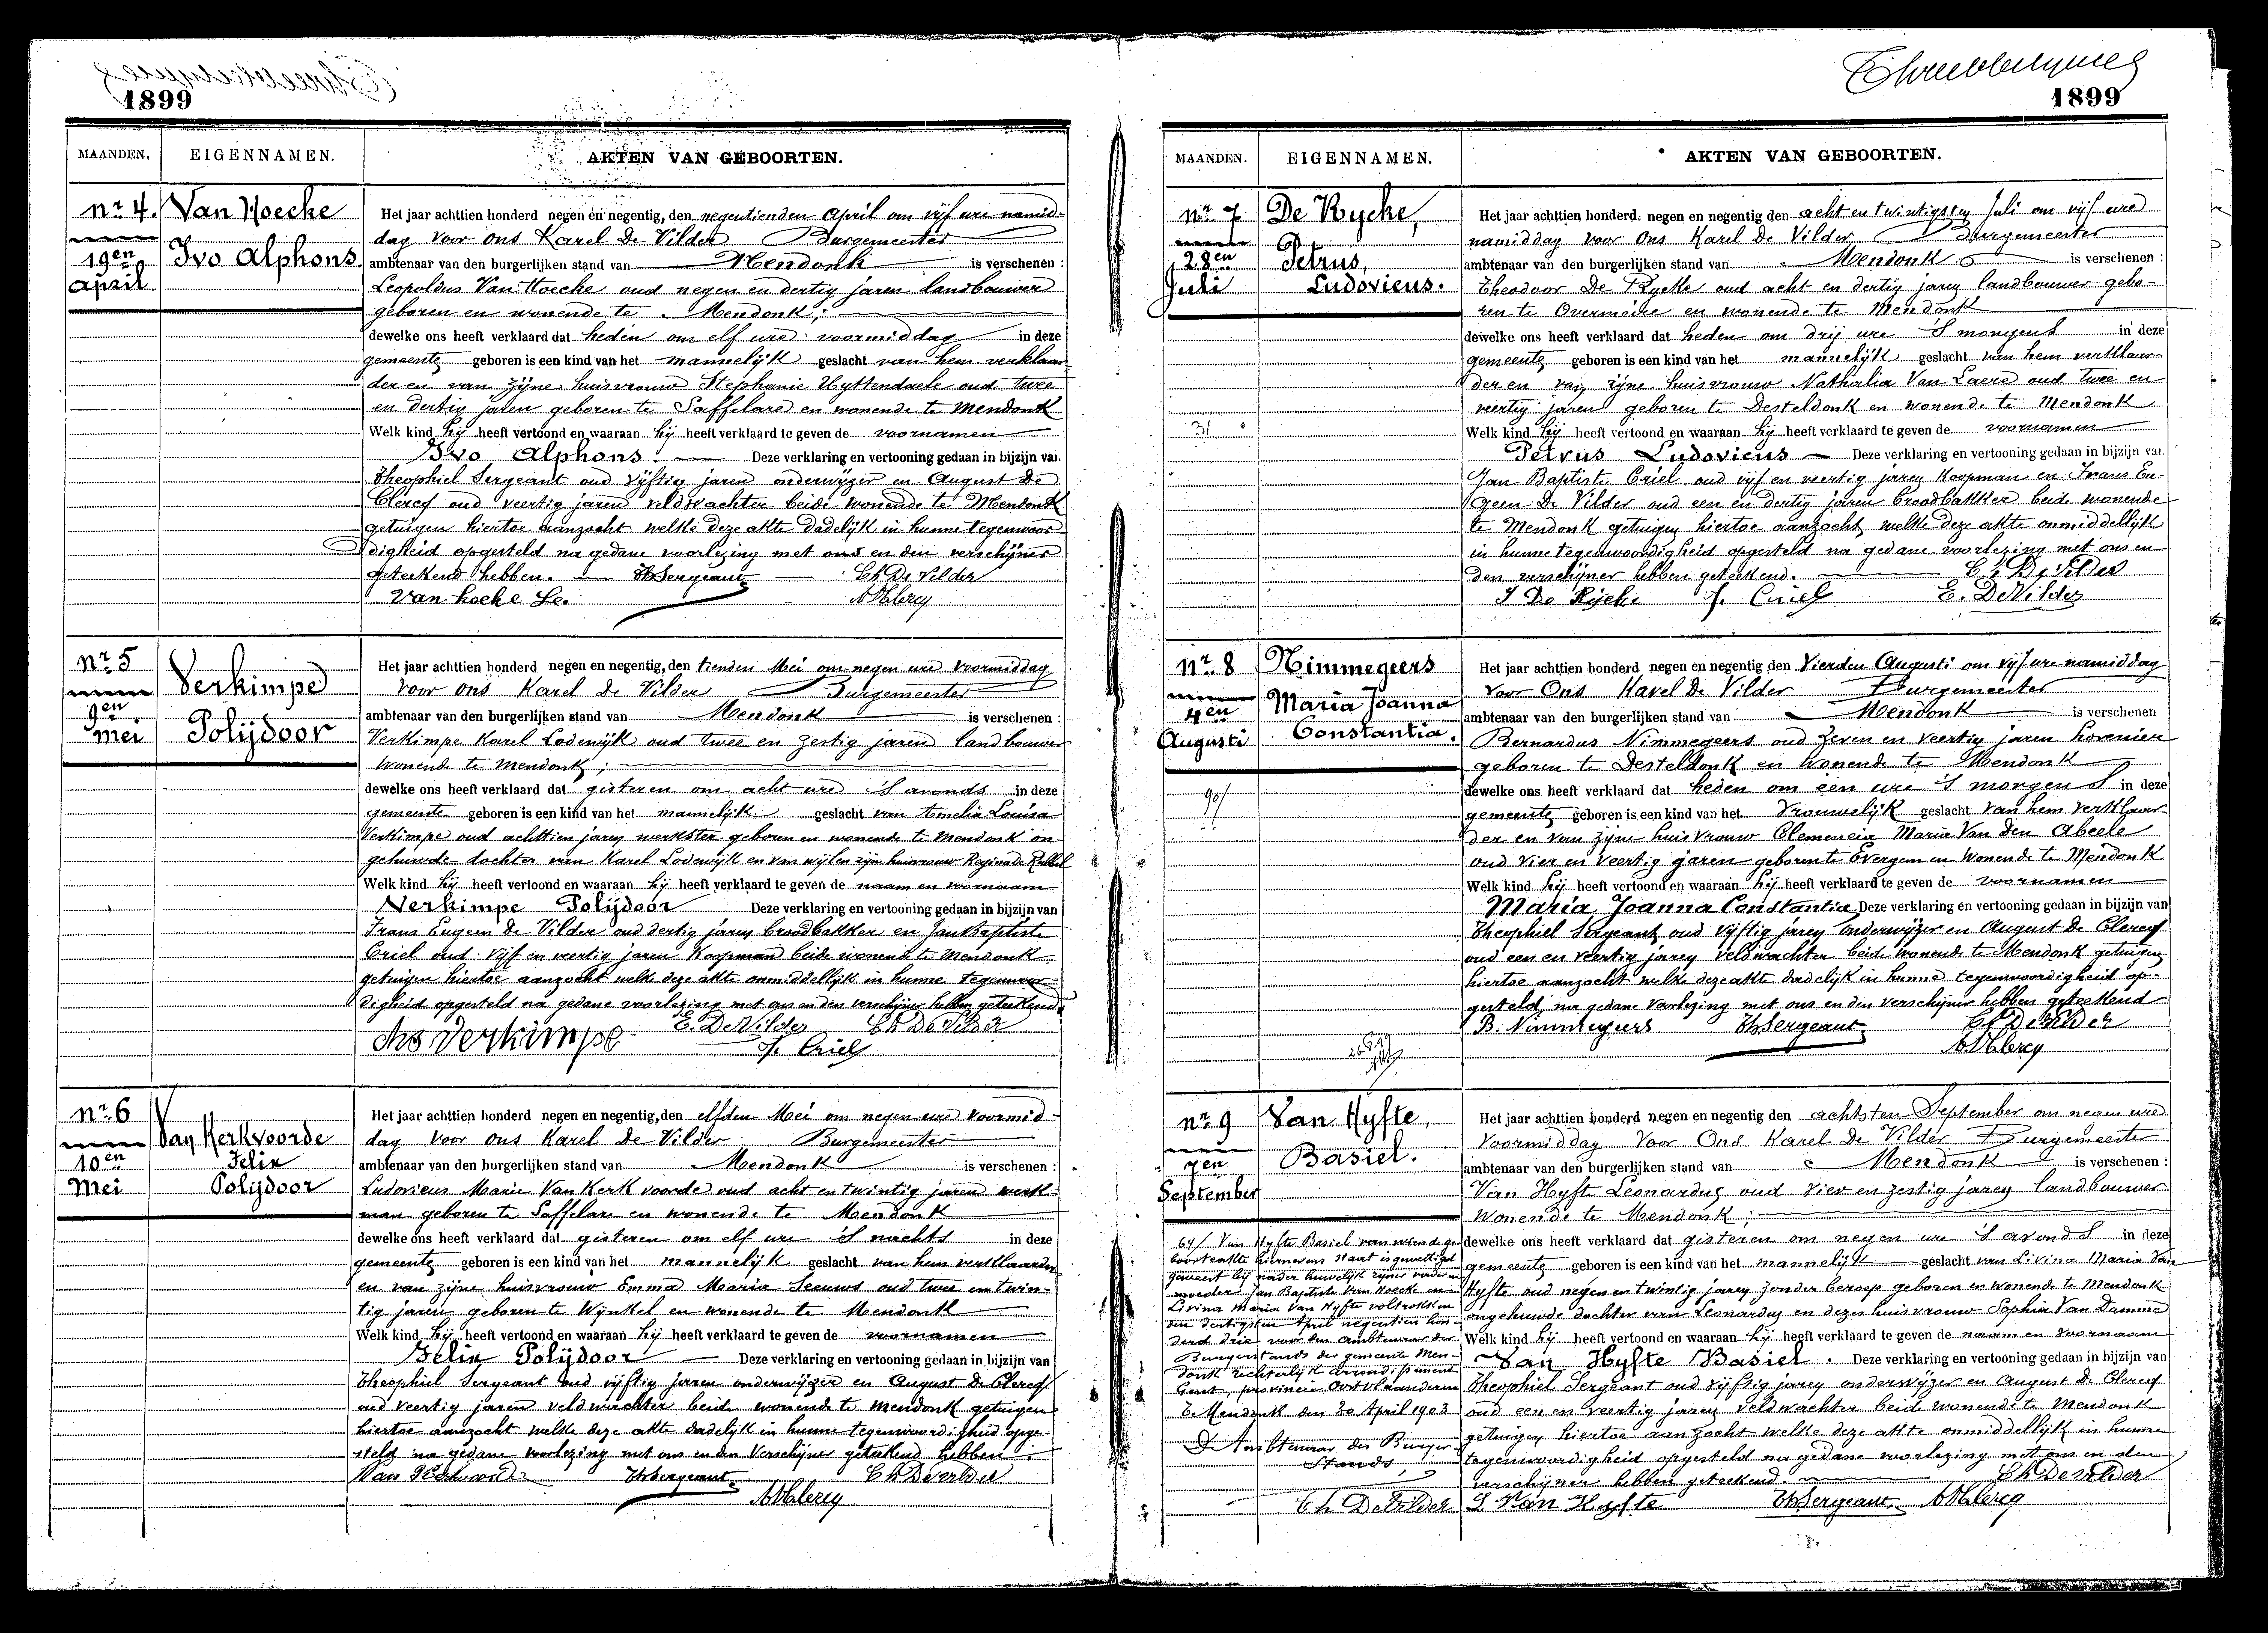 1899
MAANDEN. EIGENNAMEN. AKTEN VAN GEBOORTEN.
nr 4. Van Hoecke
19en Ivo Alphons
April
Het jaar achttien honderd negen en negentig, den negentienden April om vijf ure namid-
dag voor ons Karel De Vilder Burgemeester
ambtenaar van den burgerlijken stand van Mendonk is verschenen :
Leopoldus Van Hoecke oud negen en dertig jaren landbouwer
geboren en wonende te Mendonk;
dewelke ons heeft verklaard dat heden om elf ure voormiddag in deze
gemeente geboren is een kind van het mannelijk geslacht van hem verklaar-
der en van zijne huisvrouw Stephanie Uyttendaele oud twee
en dertig jaren geboren te Saffelare en wonende te Mendonk
Welk kind hij heeft vertoond en waaraan hij heeft verklaard te geven de voornamen
Ivo Alphons. Deze verklaring en vertooning gedaan in bijzijn van
Theophiel Sergeant oud vijftig jaren onderwijzer en August De
Clercq oud veertig jaren veldwachter beide wonende te Mendonk
getuigen hiertoe aanzocht welke deze akte dadelijk in hunne tegenwoor-
digheid opgesteld na gedane voorlezing met ons en den verschijner
geteekend hebben. Th Sergeant Ch De Vilder
Van hoeke Le. A D Clercq
nr 5 Verkimpe
9en
Mei Polijdoor
Het jaar achttien honderd negen en negentig, den tienden Mei om negen ure voormiddag
voor ons Karel De Vilder Burgemeester
ambtenaar van den burgerlijken stand van Mendonk is verschenen :
Verkimpe Karel Lodewijk oud twee en zestig jaren landbouwer
wonende te Mendonk;
dewelke ons heeft verklaard dat gisteren om acht ure 's avonds in deze
gemeente geboren is een kind van het mannelijk geslacht van Amelia Louisa
Verkimpe oud achttien jaren werkster geboren en wonende te Mendonk on-
gehuwde dochter van Karel Lodewijk en van wijlen zijne huisvrouw Regina De
Welk kind hij heeft vertoond en waaraan hij heeft verklaard te geven de naam en voornaam
Verkimpe Polijdoor Deze verklaring en vertooning gedaan in bijzijn van
Frans Eugeen De Vilder oud dertig jaren broodbakker en Jan Baptiste
Criel oud vijf en veertig jaren Koopman beide wonende te Mendonk
getuigen hiertoe aanzocht welke deze akte onmiddellijk in hunne tegenwoor-
digheid opgesteld na gedane voorlezing met ons en den verschijner hebben geteekend
chs Verkimpe E. De Vilder Ch De Vilder
J. Criel
nr 6 Van Kerkvoorde
10en Felix
Mei Polijdoor
Het jaar achttien honderd negen en negentig, den elfden Mei om negen ure voormid-
dag voor ons Karel De Vilder Burgemeester
ambtenaar van den burgerlijken stand van Mendonk is verschenen :
Ludovicus Marie Van Kerkvoorde oud acht en twintig jaren werk-
man geboren te Saffelare en wonende te Mendonk
dewelke ons heeft verklaard dat gisteren om elf ure 's nachts in deze
gemeente geboren is een kind van het mannelijk geslacht van hem verklaarder
en van zijne huisvrouw Emma Maria Seeuws oud twee en twin-
tig jaren geboren te Wynkel en wonende te Mendonk
Welk kind hij heeft vertoond en waaraan hij heeft verklaard te geven de voornamen
Felix Polijdoor Deze verklaring en vertooning gedaan in bijzijn van
Theophiel Sergeant oud vijftig jaren onderwijzer en August De Clercq
oud veertig jaren veldwachter beide wonende te Mendonk getuigen
hiertoe aanzocht welke deze akte dadelijk in hunne tegenwoordigheid opge-
steld na gedane voorlezing met ons en den Verschijner geteekend hebben.
Th Sergeant Ch De Vilder
A D Clercq
1899
MAANDEN. EIGENNAMEN. AKTEN VAN GEBOORTEN.
nr 7 De Rycke,
28en Petrus,
Juli Ludovicus.
Het jaar achttien honderd negen en negentig den acht en twintigsten Juli om vijf ure
namiddag voor Ons Karel De Vilder Burgemeester
ambtenaar van den burgerlijken stand van Mendonk is verschenen :
Theodoor De Rycke oud acht en dertig jaren landbouwer gebo-
ren te Overmeire en wonende te Mendonk
dewelke ons heeft verklaard dat heden om drij ure 's morgens in deze
gemeente geboren is een kind van het mannelijk geslacht van hem verklaar-
der en van zijne huisvrouw Nathalia Van Laere oud twee en
veertig jaren geboren te Desteldonk en wonende te Mendonk
Welk kind hij heeft vertoond en waaraan hij heeft verklaard te geven de voornamen
Petrus Ludovicus Deze verklaring en vertooning gedaan in bijzijn van
Jan Baptiste Criel oud vijf en veertig jaren Koopman en Frans Eu-
geen De Vilder oud een en dertig jaren broodbakker beide wonende
te Mendonk getuigen hiertoe aanzocht welke deze akte onmiddellijk
in hunne tegenwoordigheid opgesteld na gedane voorlezing met ons en
den verschijner hebben geteekend. Ch De Vilder
De Rycke J. Criel E. De Vilder
nr 8 Nimmegeers
4en Maria Joanna
Augusti Constantia.
90/
Het jaar achttien honderd negen en negentig den Vierden Augusti om vijf ure namiddag
voor Ons Karel De Vilder Burgemeester
ambtenaar van den burgerlijken stand van Mendonk is verschenen
Bernardus Nimmegeers oud zeven en veertig jaren hovenier
geboren te Desteldonk en wonende te Mendonk
dewelke ons heeft verklaard dat heden om een ure 's morgens in deze
gemeente geboren is een kind van het Vrouwelijk geslacht van hem verklaar-
der en van zijne huisvrouw Clemencia Maria Van den Abeele
oud vier en veertig jaren geboren te Evergem en wonende te Mendonk
Welk kind hij heeft vertoond en waaraan hij heeft verklaard te geven de voornamen
Maria Joanna Constantia Deze verklaring en vertooning gedaan in bijzijn van
Theophiel Sergeant oud vijftig jaren onderwijzer en August De Clercq
oud een en veertig jaren veldwachter beide wonende te Mendonk getuigen
hiertoe aanzocht welke deze akte dadelijk in hunne tegenwoordigheid op-
gesteld na gedane voorlezing met ons en den verschijner hebben geteekend
B. Nimmegeers Th Sergeant Ch De Vilder
A D Clercq
nr 9 Van Hyfte,
7en Basiel.
September
Het jaar achttien honderd negen en negentig den achtsten September om negen ure
Voormiddag Voor Ons Karel De Vilder Burgemeester
ambtenaar van den burgerlijken stand van Mendonk is verschenen :
Van Hyfte Leonardus oud vier en zestig jaren landbouwer
wonende te Mendonk;
dewelke ons heeft verklaard dat gisteren om negen ure 's avonds in deze
gemeente geboren is een kind van het mannelijk geslacht van Livina Maria Van
Hyfte oud negen en twintig jaren zonder beroep geboren en wonende te Mendonk
ongehuwde dochter van Leonardus en dezes huisvrouw Sophia Van Damme
Welk kind hij heeft vertoond en waaraan hij heeft verklaard te geven de naam en voornaam
Van Hyfte Basiel. Deze verklaring en vertooning gedaan in bijzijn van
Theophiel Sergeant oud vijftig jaren onderwijzer en August De Clercq
oud een en veertig jaren veldwachter beide wonende te Mendonk
getuigen hiertoe aanzocht welke deze akte onmiddellijk in hunne
tegenwoordigheid opgesteld na gedane voorlezing met ons en den
verschijner hebben geteekend. Ch De Vilder
L Van Hyfte Th Sergeant A D Clercq
Van Hyfte Basiel van wiens ge-
boorteakte hiernevens staat is gewettigd
geweest bij nader huwelijk zijner vader en
moeder Jan Baptiste Van Hoecke en
Livina Maria Van Hyfte voltrokken
den dertigsten April negentien hon-
derd drie voor den Ambtenaar der
Burgerstands der gemeente Men-
donk rechterlijk arrondissement
Gent, provincie Oostvlaanderen
Mendonk den 30 April 1903
De Ambtenaar des Burger-
Stands,
Ch De Vilder